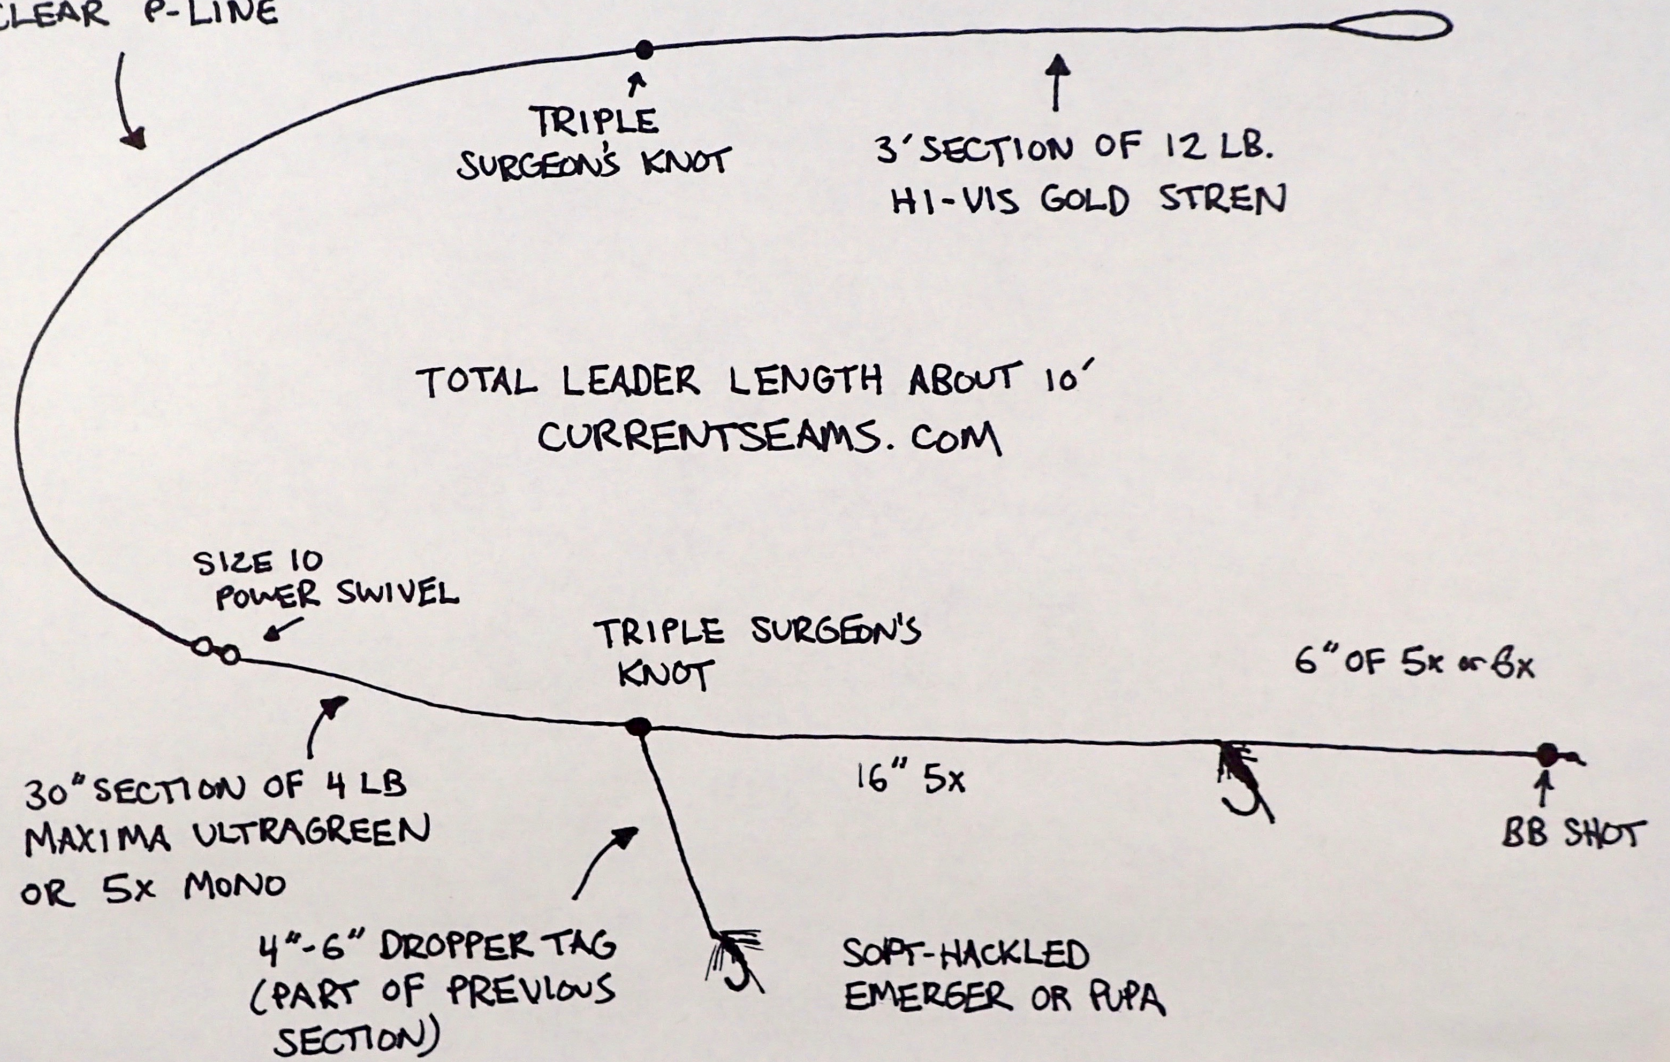 CLEAR P-LINE
TRIPLE
SURGEON'S KNOT
3' SECTION OF 12 LB.
HI-VIS GOLD STREN
TOTAL LEADER LENGTH ABOUT 10'
CURRENTSEAMS.COM
SIZE 10
POWER SWIVEL
TRIPLE SURGEON'S
KNOT
6" OF 5x or 6x
30" SECTION OF 4 LB
MAXIMA ULTRAGREEN
OR 5x MONO
16" 5x
BB SHOT
4"-6" DROPPER TAG
(PART OF PREVIOUS
SECTION)
SOFT-HACKLED
EMERGER OR PUPA